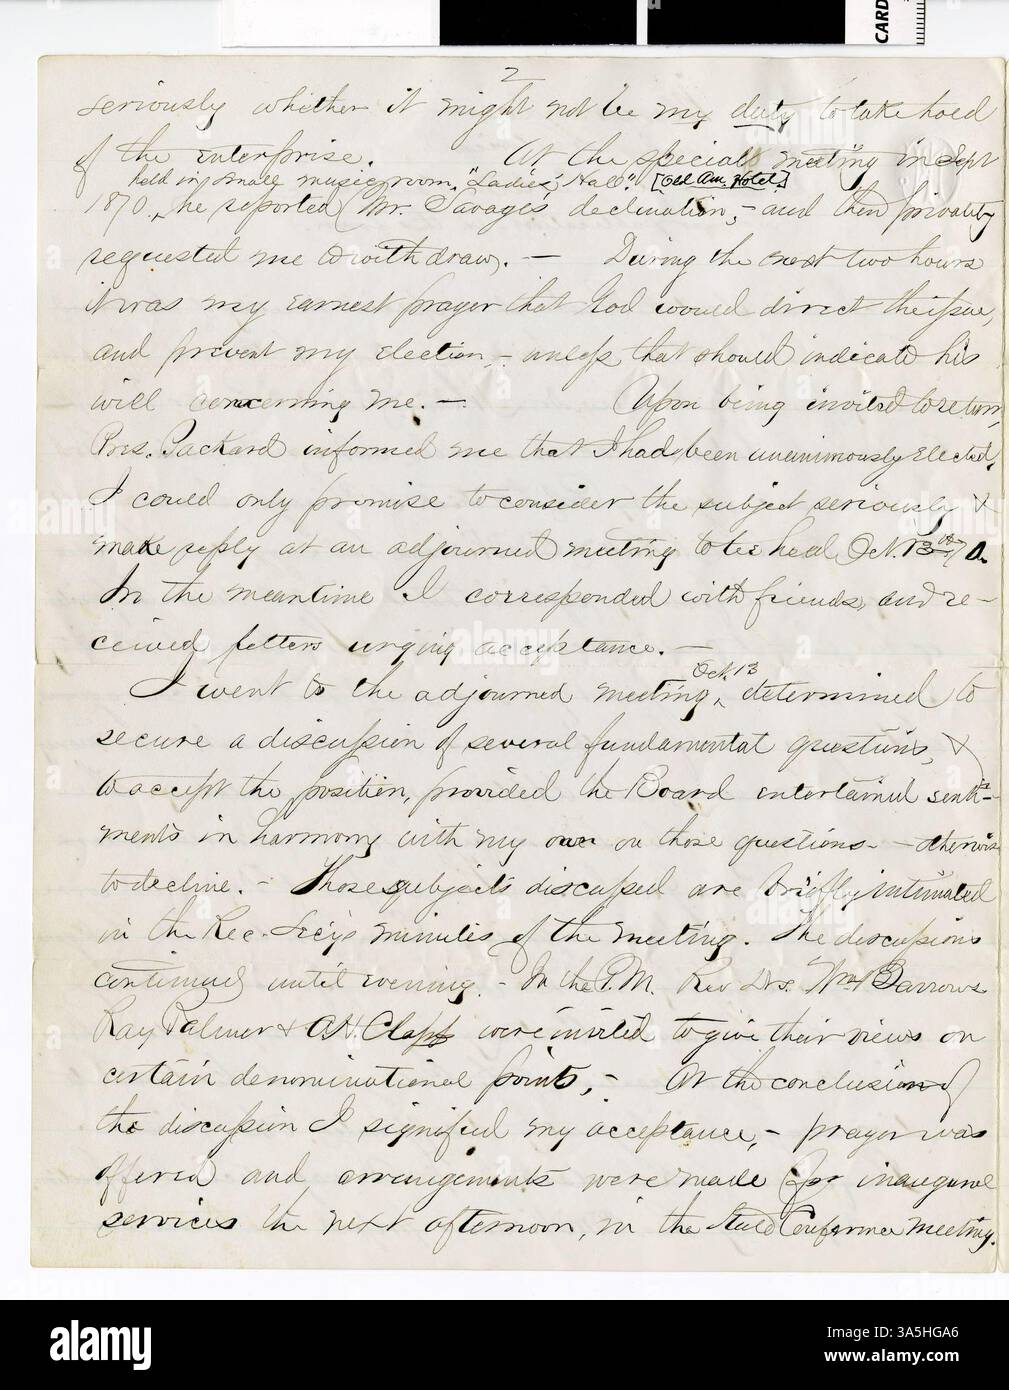 CARD
2
seriously whether it might not be my duty to take hold
of the enterprise. At the special meeting in Sept
held in small music room, "Ladies' Hall". [Old Am. Hotel.]
1870, he reported Mr. Savage's declination, - and then privately
requested me to withdraw. - During the next two hours
it was my earnest prayer that God would direct the issue,
and prevent my election, - unless that should indicate his
will concerning me. - Upon being invited to return,
Pres. Packard informed me that I had been unanimously elected.
I could only promise to consider the subject seriously &
make reply at an adjourned meeting to be held Oct. 13th 70.
In the meantime I corresponded with friends and re-
ceived letters urging acceptance. -
Oct. 13
I went to the adjourned meeting, determined to
secure a discussion of several fundamental questions, &
to accept the position, provided the Board entertained senti-
ments in harmony with my own on those questions - otherwise
to decline. - Those subjects discussed are briefly intimated
in the Rec. Sec'y's minutes of the meeting. The discussions
continued until evening. - In the P.M. Rev Drs. Wm Barrows
Ray Palmer & A.H. Clapp were invited to give their views on
certain denominational points, - At the conclusion of
the discussion I signified my acceptance, - prayer was
offered and arrangements were made for inaugural
services the next afternoon, in the State Conference meeting.
alamy
Image ID: A5HGA6
www.alamy.com